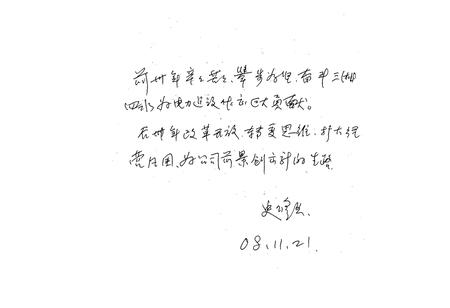 前卅年辛辛苦苦、肇步为组、奋斗三十
四水为电力建设作出巨大贡献。
后卅年改革开放、转变思维、扩大经
营月围、为公司前景创立新的生路
08.11.21.